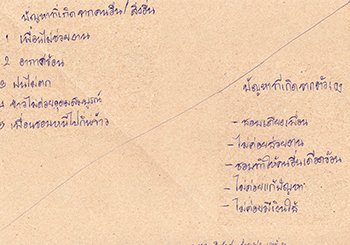 ปัญหาที่เกิดจากคนอื่น/สิ่งอื่น
1 เพื่อนไม่ช่วยงาน
2 อากาศร้อน
3 ฝนไม่ตก
4 ข้าวไม่ค่อยอุดมสมบูรณ์
5 เพื่อนชอบหนีไปกินข้าว
ปัญหาที่เกิดจากตัวเอง
- ชอบเถียงเพื่อน
- ไม่ค่อยช่วยงาน
- ชอบทำให้คนอื่นเดือดร้อน
- ไม่ค่อยแก้ปัญหา
- ไม่ค่อยมีเงินใช้